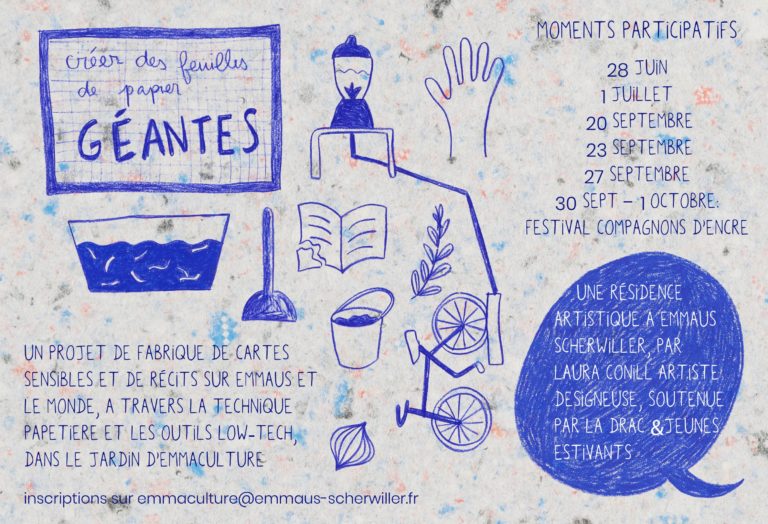 créer des feuilles
de papier
GÉANTES
MOMENTS PARTICIPATIFS
28 JUIN
1 JUILLET
20 SEPTEMBRE
23 SEPTEMBRE
27 SEPTEMBRE
30 SEPT – 1 OCTOBRE:
FESTIVAL COMPAGNONS D'ENCRE
UN PROJET DE FABRIQUE DE CARTES
SENSIBLES ET DE RÉCITS SUR EMMAUS ET
LE MONDE, A TRAVERS LA TECHNIQUE
PAPETIERE ET LES OUTILS LOW-TECH,
DANS LE JARDIN D'EMMACULTURE
UNE RÉSIDENCE
ARTISTIQUE A EMMAUS
SCHERWILLER, PAR
LAURA CONILL ARTISTE
DESIGNEUSE, SOUTENUE
PAR LA DRAC &JEUNES
ESTIVANTS
inscriptions sur emmaculture@emmaus-scherwiller.fr